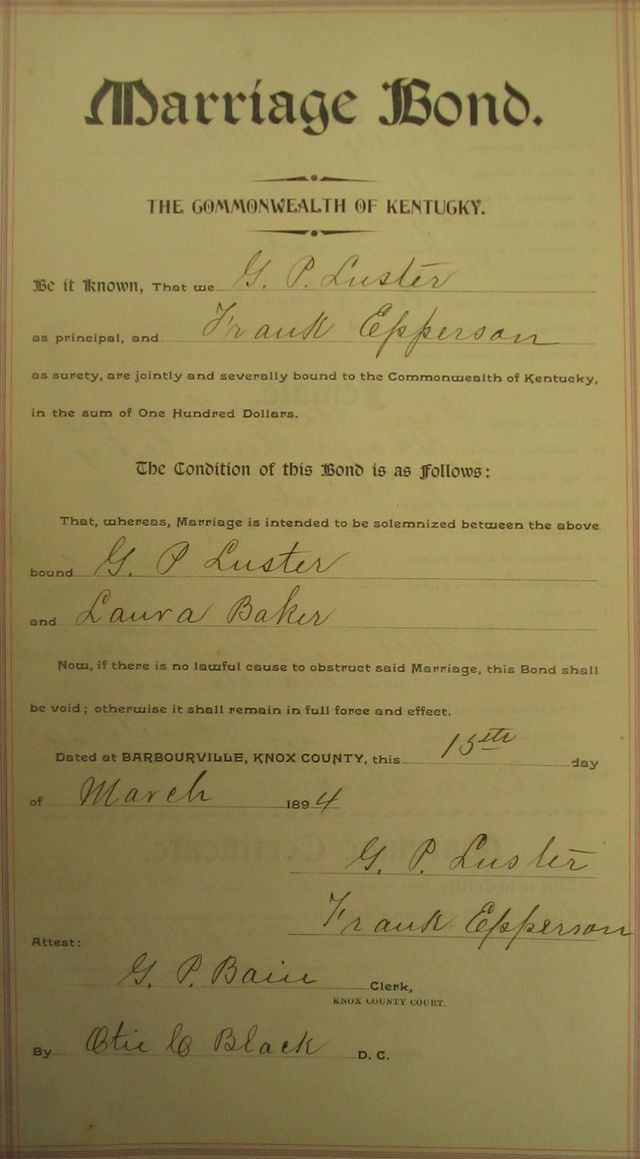 Marriage Bond.
THE COMMONWEALTH OF KENTUCKY.
Be it Known, That we G. P. Luster
as principal, and Frank Epperson
as surety, are jointly and severally bound to the Commonwealth of Kentucky,
in the sum of One Hundred Dollars.
The Condition of this Bond is as Follows:
That, whereas, Marriage is intended to be solemnized between the above
bound G. P Luster
and Laura Baker
Now, if there is no lawful cause to obstruct said Marriage, this Bond shall
be void; otherwise it shall remain in full force and effect.
Dated at BARBOURVILLE, KNOX COUNTY, this 15th day
of March 1894
G. P. Luster
Frank Epperson
Attest:
G. P. Bain Clerk,
KNOX COUNTY COURT.
By Otie C Black D. C.